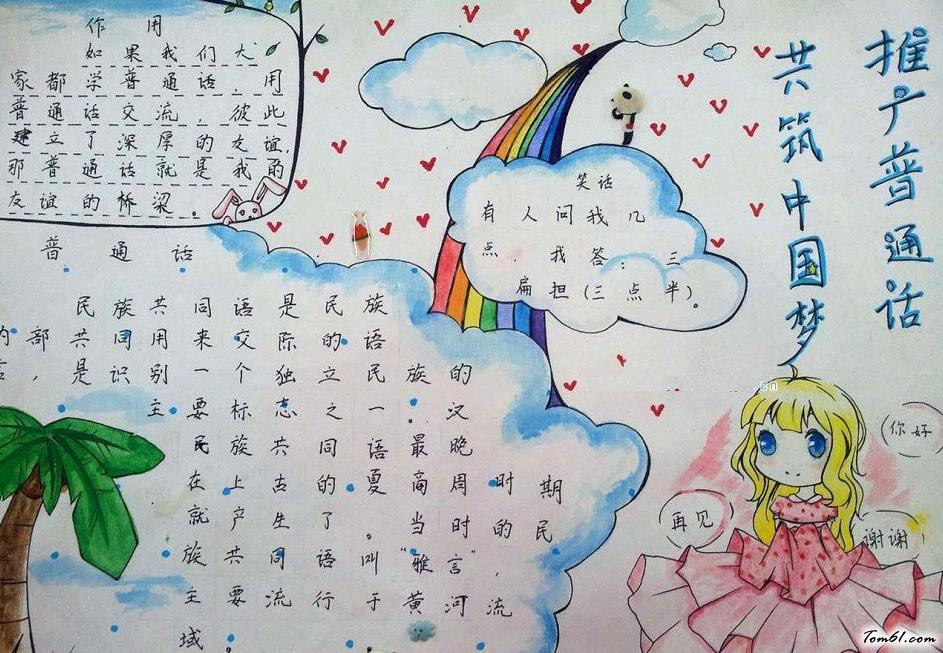 推广普通话
共筑中国梦
作用
如果我们大
家都学普通话，用
普通话交流，彼此
建立了深厚的友谊，
那普通话就是我的
友谊的桥梁。
笑话
有人问我几
点，我答：三
扁担（三点半）。
普通话
民族共同语是民族
内部共同用来交际的语
言，是识别一个独立民族的
主要标志之一。汉
民族共同语最晚
在上古的夏商周时期
就产生了。当时的民
族共同语叫“雅言”，
主要流行于黄河流
域。
你好
再见
谢谢
cn
Tom61.com